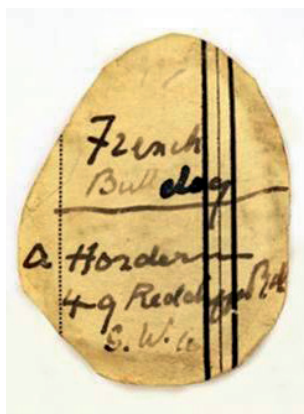 French
Bull dog
A Hordern
49 Redcliffe Rd
S. W. 10